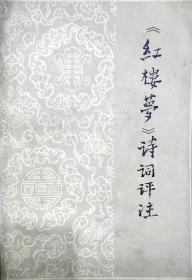 《紅樓夢》诗词评注